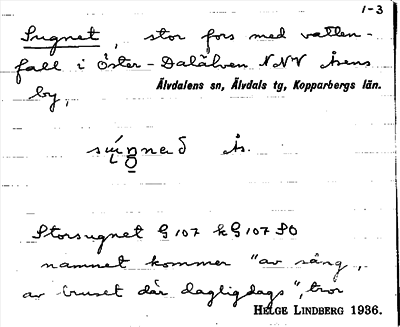 1-3
Sugnet, stor fors med vatten-
fall i Öster-Dalälven NNV Åsens
by,
Älvdalens sn, Älvdals tg, Kopparbergs län.
Ås.
Storsugnet G 107 kG 107 SO
namnet kommer "av sång,
av bruset där dagligdags", tror
HELGE LINDBERG 1936.